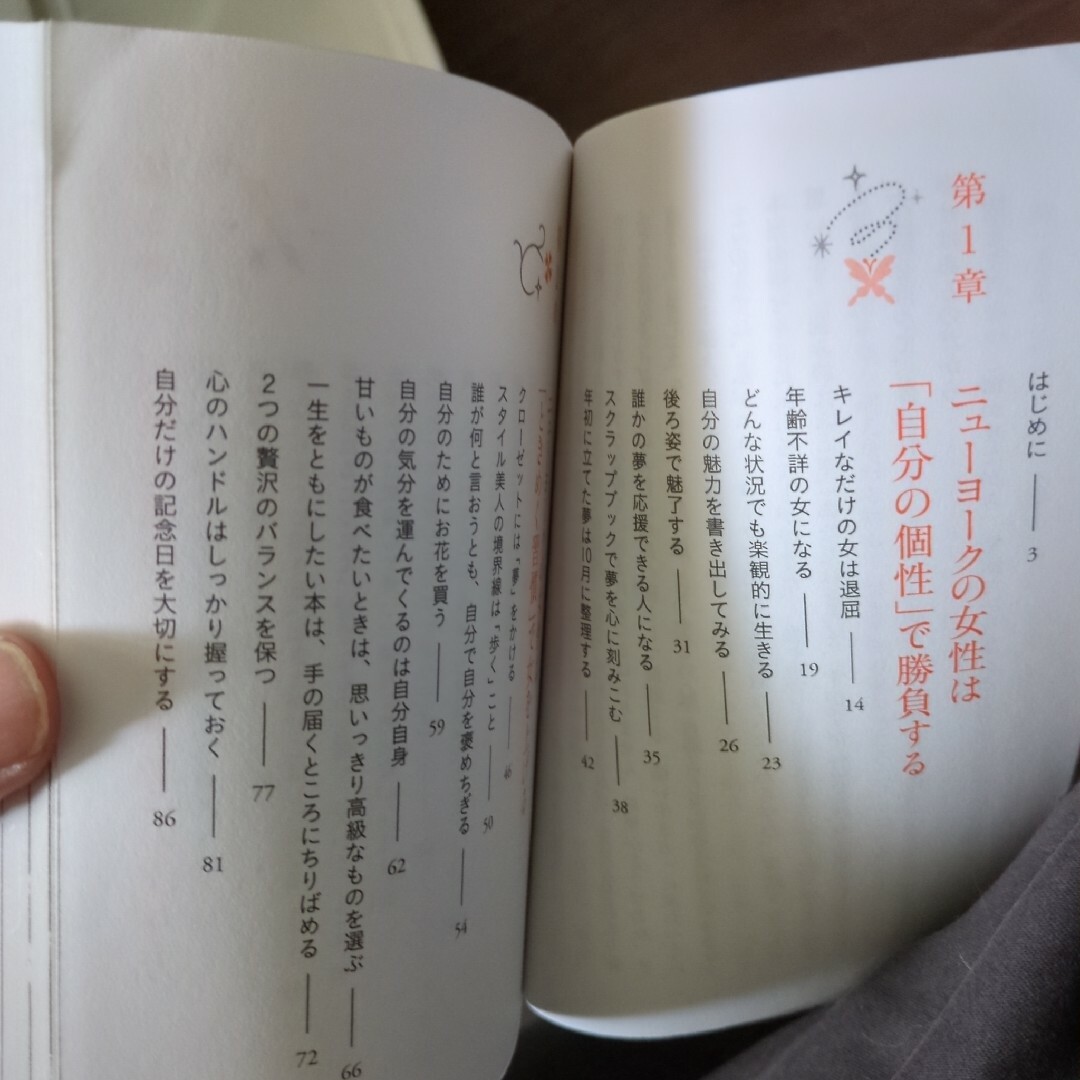 はじめに 3
第1章
ニューヨークの女性は
「自分の個性」で勝負する
キレイなだけの女は退屈 14
年齢不詳の女になる 19
どんな状況でも楽観的に生きる 23
自分の魅力を書き出してみる 26
後ろ姿で魅了する 31
誰かの夢を応援できる人になる 35
スクラップブックで夢を心に刻みこむ 38
年初に立てた夢は10月に整理する 42
クローゼットには「夢」をかける 46
スタイル美人の境界線は「歩く」こと 50
誰が何と言おうとも、自分で自分を褒めちぎる 54
自分のためにお花を買う 59
自分の気分を運んでくるのは自分自身 62
甘いものが食べたいときは、思いっきり高級なものを選ぶ 66
一生をともにしたい本は、手の届くところにちりばめる 72
2つの贅沢のバランスを保つ 77
心のハンドルはしっかり握っておく 81
自分だけの記念日を大切にする 86